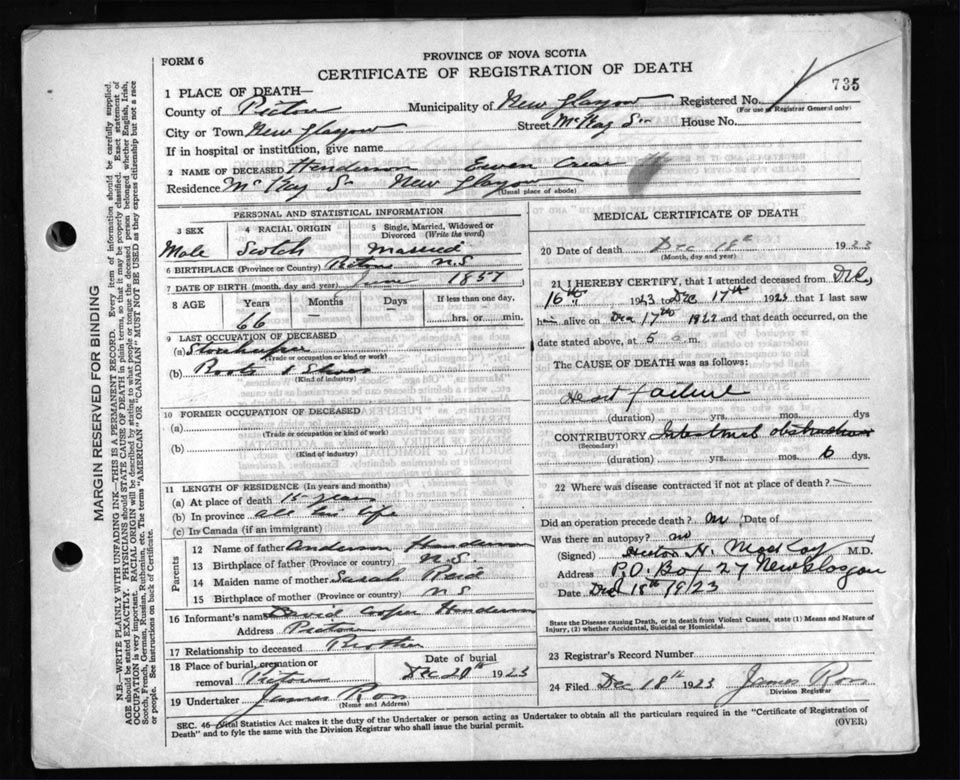 FORM 6
PROVINCE OF NOVA SCOTIA
CERTIFICATE OF REGISTRATION OF DEATH
735
1 PLACE OF DEATH—
County of Pictou Municipality of New Glasgow Registered No.
(For use of Registrar General only)
City or Town New Glasgow Street McKay St House No.
If in hospital or institution, give name
2 NAME OF DECEASED Henderson Ewen
Residence McKay St New Glasgow
(Usual place of abode)
PERSONAL AND STATISTICAL INFORMATION
3 SEX 4 RACIAL ORIGIN 5 Single, Married, Widowed or Divorced (Write the word)
Male Scotch Married
6 BIRTHPLACE (Province or Country) Pictou N.S.
7 DATE OF BIRTH (month, day and year) June 1857
8 AGE Years Months Days If less than one day,
66 — — hrs. or min.
9 LAST OCCUPATION OF DECEASED
(a) Storekeeper
(Trade or occupation or kind or work)
(b) Boots & Shoes
(Kind of industry)
10 FORMER OCCUPATION OF DECEASED
(a)
(Trade or occupation or kind of work)
(b)
(Kind of industry)
11 LENGTH OF RESIDENCE (In years and months)
(a) At place of death 15 years
(b) In province all his life
(c) In Canada (if an immigrant)
Parents
12 Name of father Anderson Henderson
13 Birthplace of father (Province or Country) N.S.
14 Maiden name of mother Sarah Reid
15 Birthplace of mother (Province or Country) N S
16 Informant's name David Cooper Henderson
Address Pictou
17 Relationship to deceased Brother
18 Place of burial, cremation or removal Pictou Date of burial Dec 20th 1923
19 Undertaker James Ross
(Name and Address)
MEDICAL CERTIFICATE OF DEATH
20 Date of death Dec 18th 1923
(Month, day and year)
21 I HEREBY CERTIFY, that I attended deceased from Dec
16th 1923 to Dec 17th 1923 that I last saw
him alive on Dec 17th 1922 and that death occurred, on
date stated above, at 5 a m.
The CAUSE OF DEATH was as follows:
Heart failure
(duration) yrs. mos. dys
CONTRIBUTORY Intestinal obstruction
(Secondary)
(duration) yrs. mos 6 dys.
22 Where was disease contracted if not at place of death?
Did an operation precede death? no Date of
Was there an autopsy? no
(Signed) H. MacKay M.D.
Address P.O. Box 27 New Glasgow
Date Dec 18th 1923
State the Disease causing Death, or in death from Violent Causes, state (1) Means and Nature of
Injury, (2) whether Accidental, Suicidal or Homicidal.
23 Registrar's Record Number
24 Filed Dec 18th 1923 James Ross
Division Registrar
SEC. 46—Vital Statistics Act makes it the duty of the Undertaker or person acting as Undertaker to obtain all the particulars required in the "Certificate of Registration of
Death" and to fyle the same with the Division Registrar who shall issue the burial permit. (OVER)
MARGIN RESERVED FOR BINDING
N.B.—WRITE PLAINLY WITH UNFADING INK—THIS IS A PERMANENT RECORD. Every item of information should be carefully supplied.
AGE should be stated EXACTLY. PHYSICIANS should STATE CAUSE OF DEATH in plain terms, so that it may be properly classified. Exact statement of
OCCUPATION is very important. RACIAL ORIGIN will be described by stating to what people or tongue the deceased person belonged whether English, Irish,
Scotch, French, German, Russian, Ruthenian, etc. The terms "AMERICAN" OR "CANADIAN" MUST NOT BE USED as they express citizenship but not a race
or people. See instructions on back of Certificate.